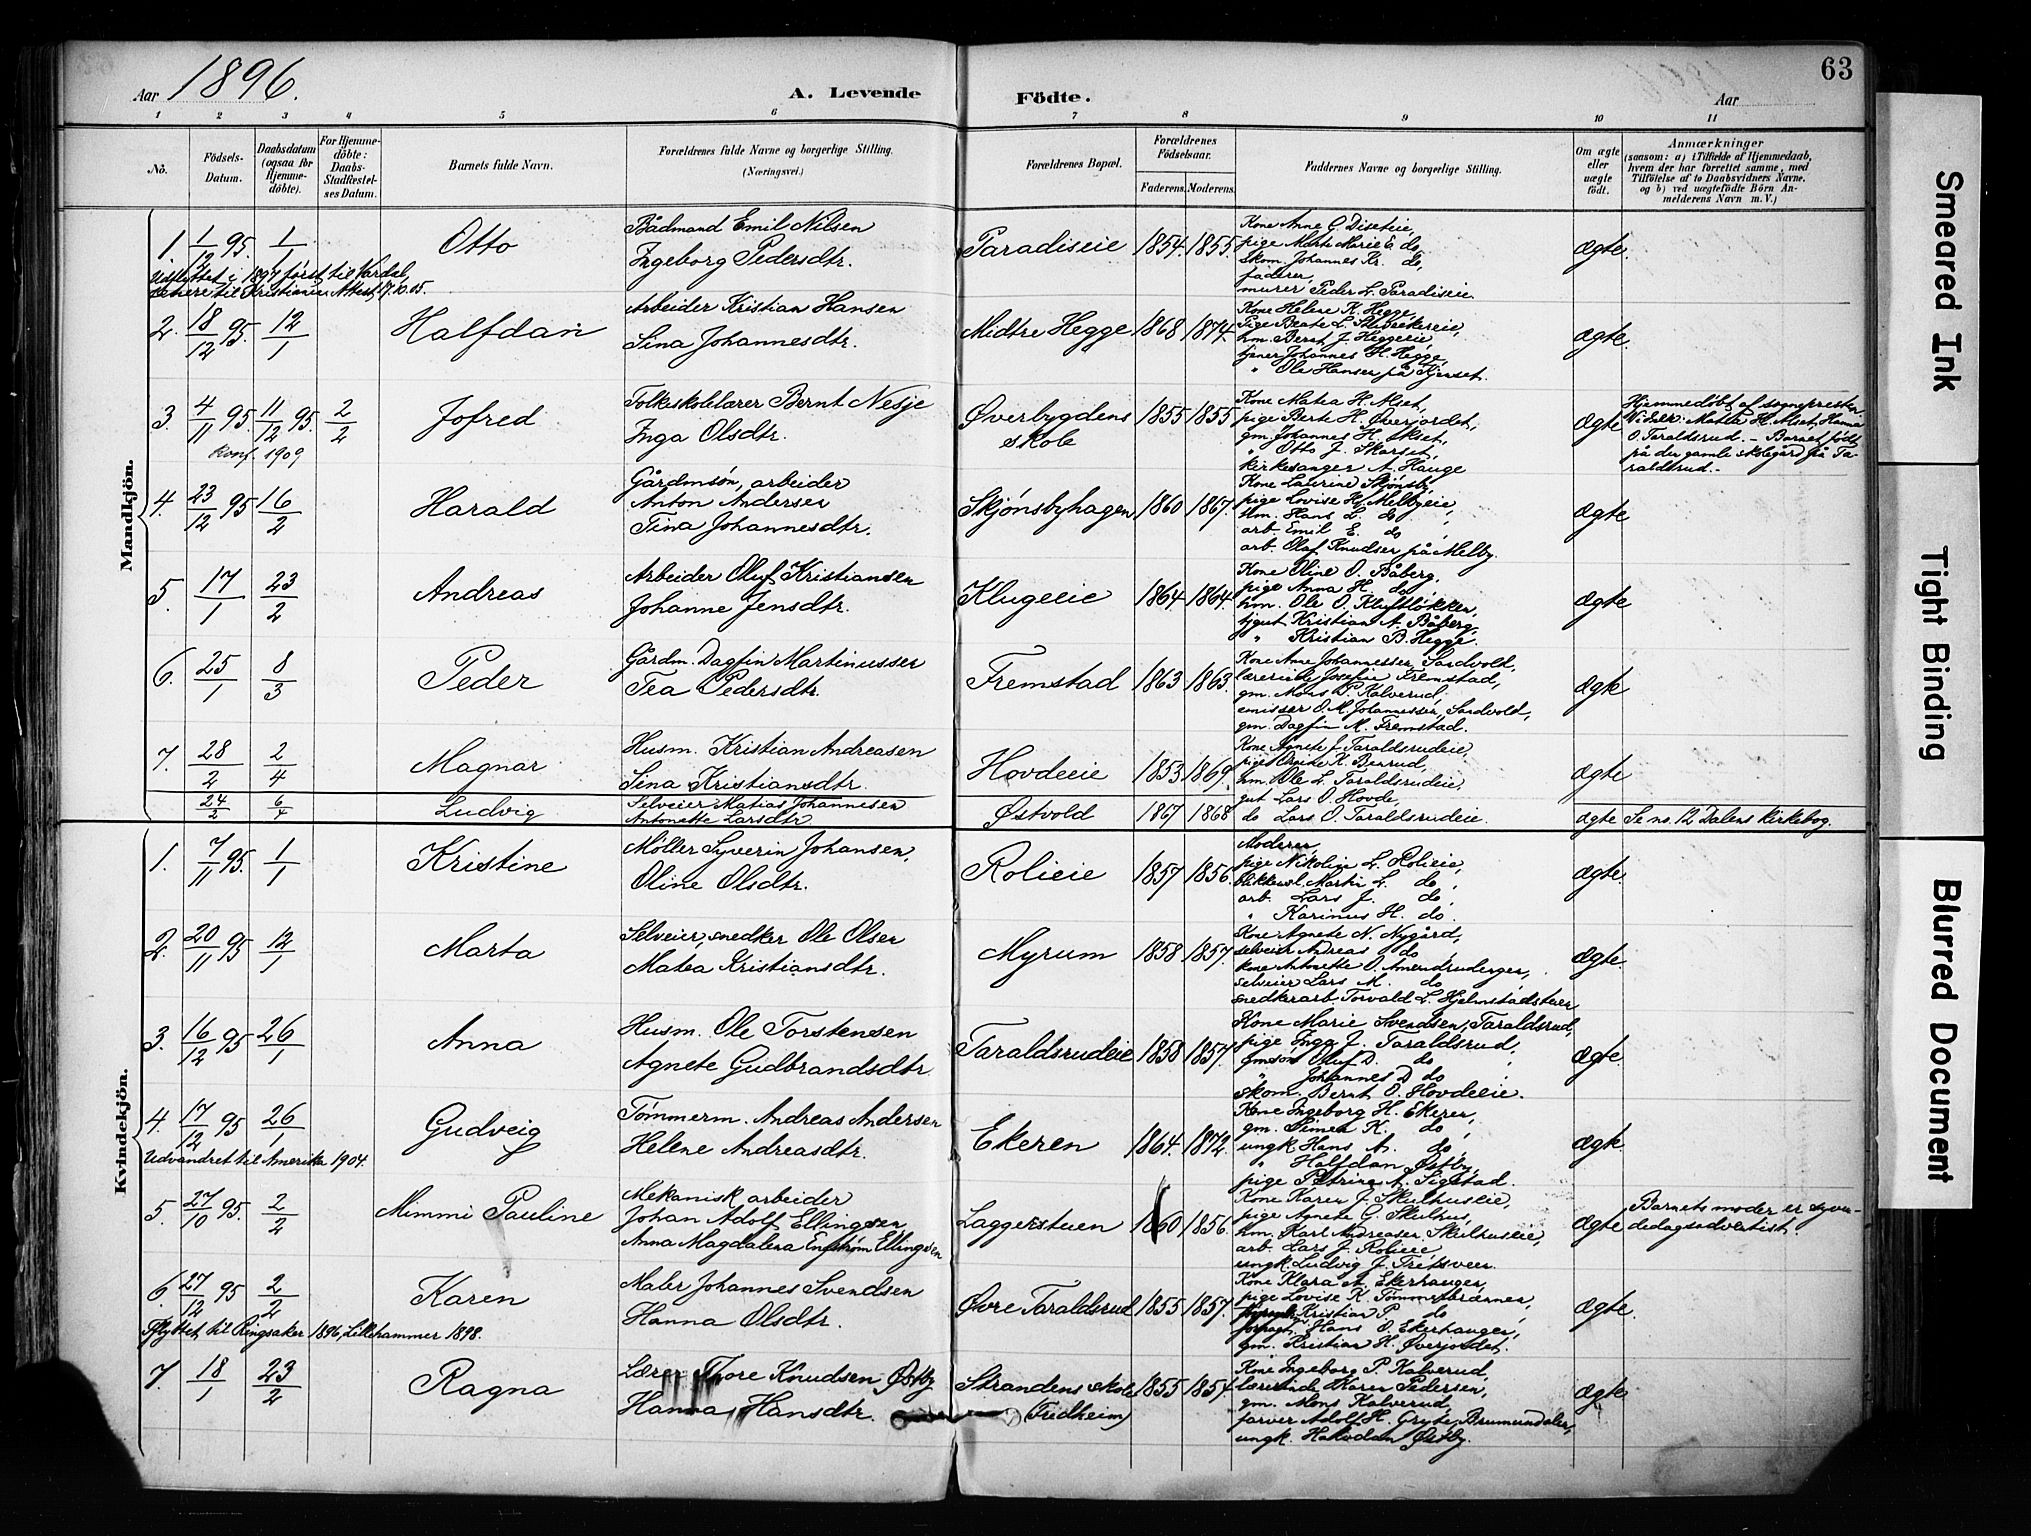 Aar 1896. A. Levende Födte. Aar 63
1 2 3 4 5 6 7 8 9 10 11
No. Födsels-Datum. Daabsdatum (ogsaa for Hjemmedöbte). For Hjemmedöbte: Daabs-Stadfæstelses Datum. Barnets fulde Navn. Forældrenes fulde Navne og borgerlige Stilling. (Næringsvei.) Forældrenes Bopæl. Forældrenes Födselsaar. Faderens. Moderens. Faddernes Navne og borgerlige Stilling. Om ægte eller uægte födt. Anmærkninger (saasom: a) i Tilfælde af Hjemmedaab, hvem der har forrettet samme, med Tilföielse af to Daabsvidners Navne. og b) ved uægtefödte Börn Anmelderens Navn m. V.)
Mandkjön.
1. 1/12 95. 1/1 Otto
Bådmand Emil Nilsen
Ingeborg Pedersdtr.
Paradiseie 1854. 1855.
Kone Anne G. Diseteie,
pige Marte Marie E. do,
Skom. Johannes Kr. do,
faderen,
murer Peder L. Paradiseie
ægte.
Udflyttet i 1897 først til Vardal,
senere til Kristiania. Attest 17.10.05.
2. 18/12 95. 12/1 Halfdan
Arbeider Kristian Hansen
Sina Johannesdtr.
Midtre Hegge 1868 1874.
Kone Helene K. Hegge,
Pige Beate L.
hm. Bernt J. Heggeeie,
tjener Johannes H. Hegge,
" Ole Hansen på
ægte.
3. 4/11 95. 11/12 95. 2/2 Jofred
Folkeskolelærer Bernt Nesje
Inga Olsdtr.
Øverbygdens skole 1855 1855
Kone Matea H. Alset,
pige Berte H. Øverjordet,
gm. Johannes H. Alset,
" Otto J. Skarset,
kirkesanger A. Hauge
ægte
Hjemmedøbt af sognepresten
Vidner: Mathea H. Alset, Hanna
O. Taraldsrud. – Barnet født
på den gamle skolegård på Ta-
raldsrud. –
Konf. 1909
4. 23/12 95 16/2 Harald
Gårdmsøn, arbeider
Anton Andersen
Tina Johannesdtr.
Skjønsbyhagen 1860 1867.
Kone Laurine Skjønsby
pige Lovise H. Melbyeie,
hm. Hans L. do,
arb. Emil E. do,
arb. Olaf Knudsen på Melby.
ægte
5. 17/1 23/2 Andreas
Arbeider Oluf Kristiansen
Johanne Jensdtr.
Klugeeie 1864 1864.
Kone Oline O. Båberg,
pige Anna H. do,
hm. Ole O. Kluftløkken,
tjgut. Kristian A. Båberg,
" Kristian B. Hegge.
ægte
6. 25/1 8/3 Peder
Gårdm. Dagfin Martinussen
Tea Pedersdtr.
Fremstad 1863 1863.
Kone Anne Johannessen, Sandvold,
lærerinde Josefie Fremstad,
gm. Mons P. Kalverud,
emissær O. M. Johannessen, Sandvold,
gm. Dagfin M. Fremstad.
ægte
7. 28/2 2/4 Magnar
Husm. Kristian Andreasen
Sina Kristiansdtr.
Hovdeeie 1853 1869.
Kone Agnete J. Taraldsrudeie,
pige K. Berrud,
hm. Ole L. Taraldsrudeie,
gut Lars O. Hovde,
do Lars O. Taraldsrudeie.
ægte
24/2 6/4 Ludvig
Selveier Matias Johannesen
Antonette Larsdtr
Østvold 1867 1868
ægte Se no. 12 Dalens kirkebog.
Kvindekjön.
1. 7/11 95. 1/1 Kristine
Møller Syverin Johansen,
Oline Olsdtr.
Rolieie 1857 1856.
Moderen,
pige Nikoline L. Rolieie,
blikkensl. Martin L. do,
arb. Lars J. do,
" Karinus H. do.
ægte.
2. 20/11 95 12/1 Marta
Selveier, snedker Ole Olsen
Matea Kristiansdtr.
Myrum 1858 1857.
Kone Agnete N. Nygård,
selveier Andreas do,
kone Antonette O. Amundrudengen,
selveier Lars M. do
snedkerarb. Torvald L. Hjelmstadstuen
ægte.
3. 16/12 95 26/1 Anna
Husm. Ole Torstensen
Agnete Gudbrandsdtr.
Taraldsrudeie 1858 1857.
Kone Marie Svendsen, Taraldsrud,
pige Inga J. Taraldsrud,
gmsøn Oluf D. do
" Johannes D. do
Skom. Bernt O. Hovdeeie.
ægte.
4. 17/12 95 26/1 Gudveig
Tømmerm. Andreas Andersen
Helene Andreasdtr.
Ekeren 1864. 1872.
Kone Ingeborg H. Ekeren,
gm. Simen K. do,
ungk Hans A. do,
" Halfdan Østby,
pige Petrine A. Sigstad.
ægte.
Udvandret til Amerika 1904.
5. 27/10 95. 2/2 Mimmi Pauline
Mekanisk arbeider
Johan Adolf Ellingsen
Anna Magdalena Engstrøm Ellingsen
Laggerstuen 1860 1856.
Kone Karen J. Skulhuseie,
pige Agnete G. Skulhus,
hm. Karl Andreasen Skulhuseie,
arb. Lars J. Rolieie
ungk. Ludvig J.
ægte
Barnets moder er syven-
dedagsadventist.
6. 27/12 95 2/2 Karen
Maler Johannes Svendsen
Hanna Olsdtr.
Øvre Taraldsrud 1855 1857.
Kone Klara A. Ekerhaugen,
pige Lovise K. Tømmerbrænnen,
Kristian P. do,
forpagt. Hans O. Ekerhaugen,
gm. Kristian H. Øverjordet.
ægte.
Flyttet til Ringsaker 1896, Lillehammer 1898.
7. 18/1 23/2 Ragna
Lærer Thore Knudsen Østby
Hanna Hansdtr.
Strandens skole (Fredheim) 1855 1857.
Kone Ingeborg P. Kalverud,
lærerinde Karen Pedersen,
gm. Mons Kalverud,
farver Adolf H. Gryte, Brumunddalen,
ungk. Halvdan Østby.
ægte
Smeared Ink
Tight Binding
Blurred Document